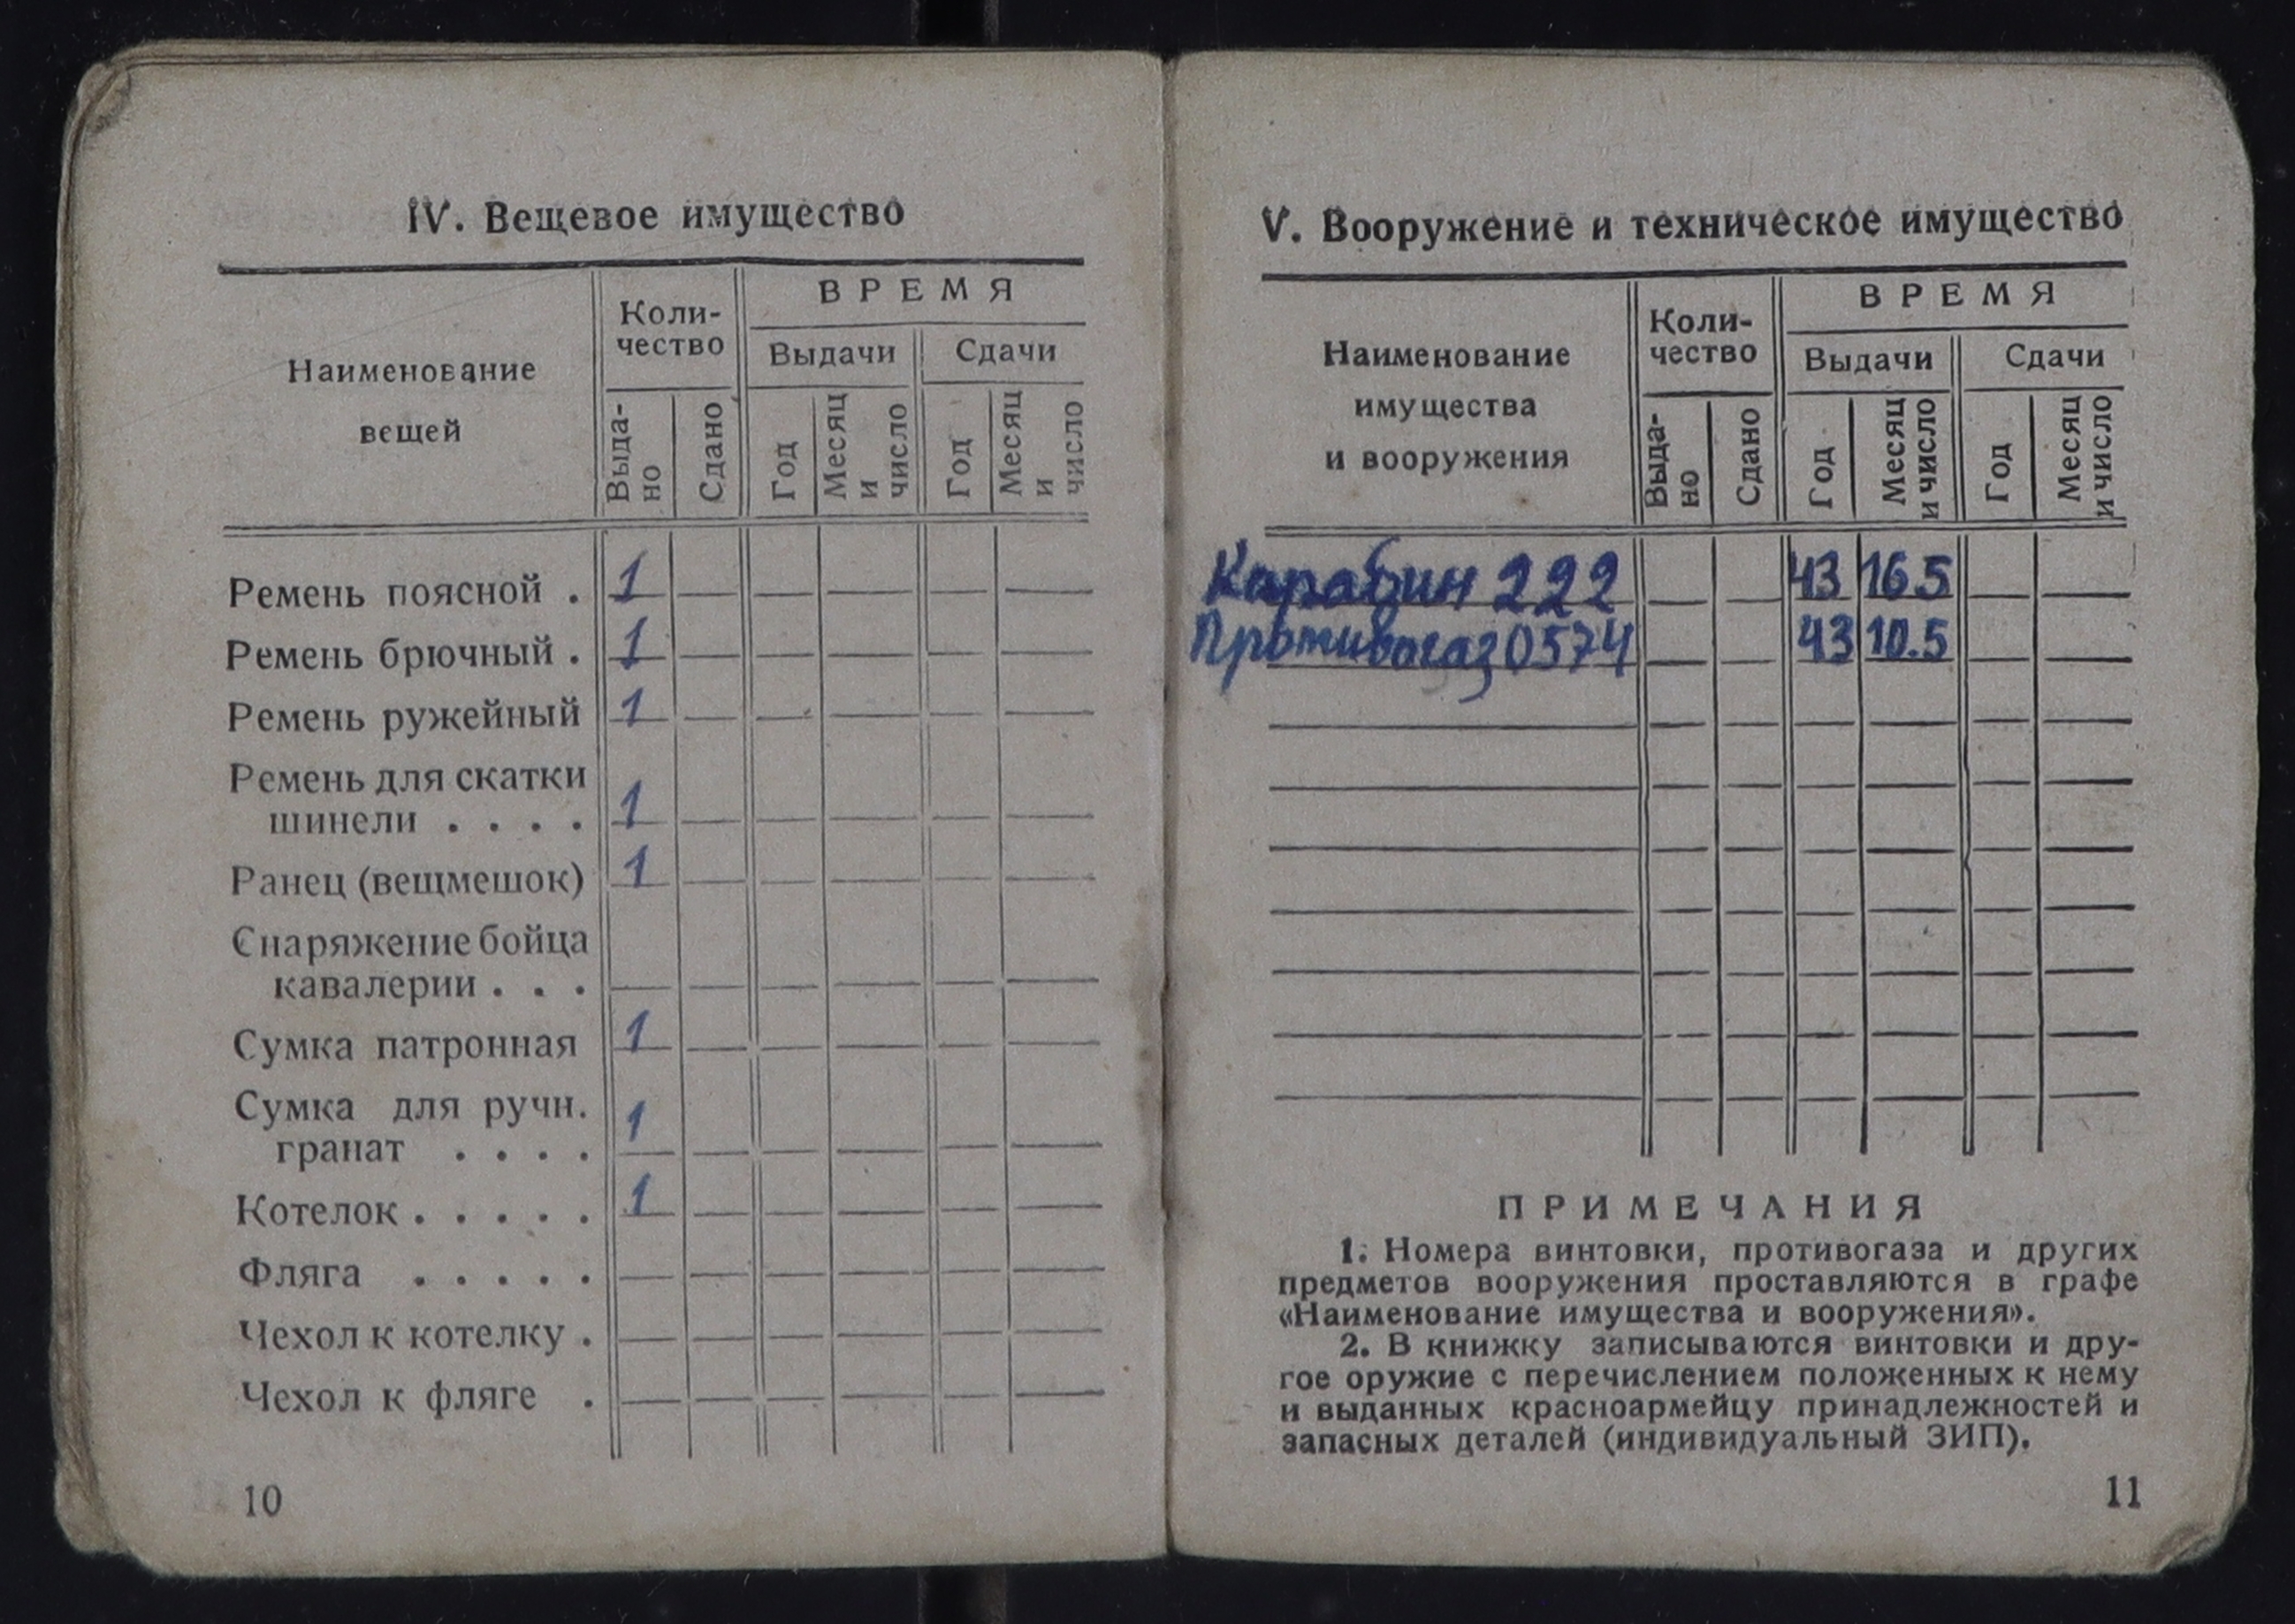 IV. Вещевое имущество
Наименование
вещей
Коли-
чество
ВРЕМЯ
Выдачи
Сдачи
Выда-
но
Сдано
Год
Месяц
и
число
Год
Месяц
и
число
Ремень поясной . 1
Ремень брючный . 1
Ремень ружейный 1
Ремень для скатки
шинели . . . . 1
Ранец (вещмешок) 1
Снаряжение бойца
кавалерии . . .
Сумка патронная 1
Сумка для ручн.
гранат . . . . 1
Котелок . . . . . 1
Фляга . . . . .
Чехол к котелку .
Чехол к фляге .
10
V. Вооружение и техническое имущество
Наименование
имущества
и вооружения
Коли-
чество
ВРЕМЯ
Выдачи
Сдачи
Выда-
но
Сдано
Год
Месяц
и число
Год
Месяц
и число
Карабин 222 43 16 5
Противогаз 0574 43 10.5
ПРИМЕЧАНИЯ
1. Номера винтовки, противогаза и других
предметов вооружения проставляются в графе
«Наименование имущества и вооружения».
2. В книжку записываются винтовки и дру-
гое оружие с перечислением положенных к нему
и выданных красноармейцу принадлежностей и
запасных деталей (индивидуальный ЗИП).
11